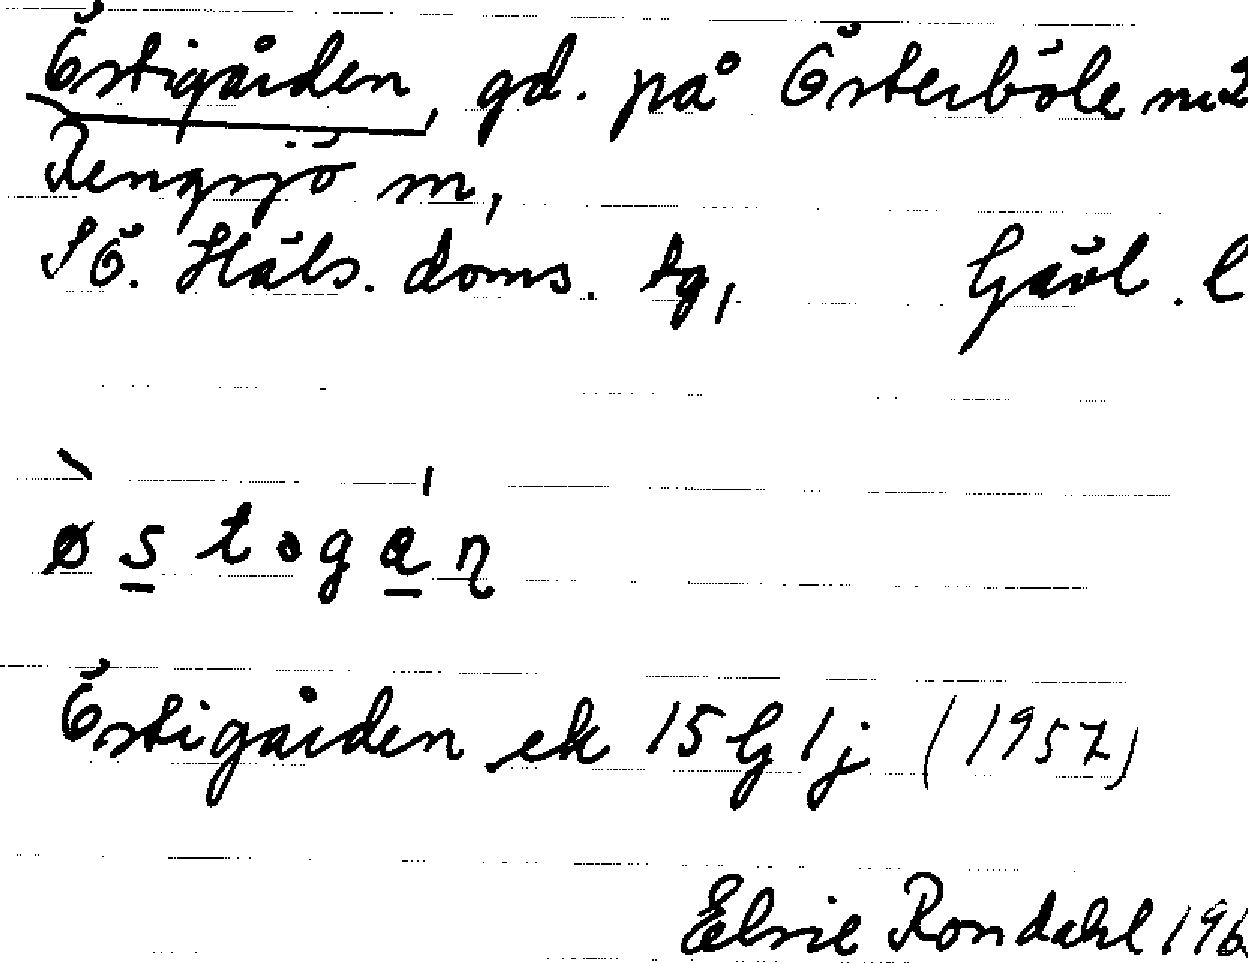 Östigården, gd. på Österböle nr 2
Rengsjö sn,
SÖ. Häls. doms. tg, Gävl. l
Östigården ek 15 G 1 j (1957)
Elsie Rondahl 196